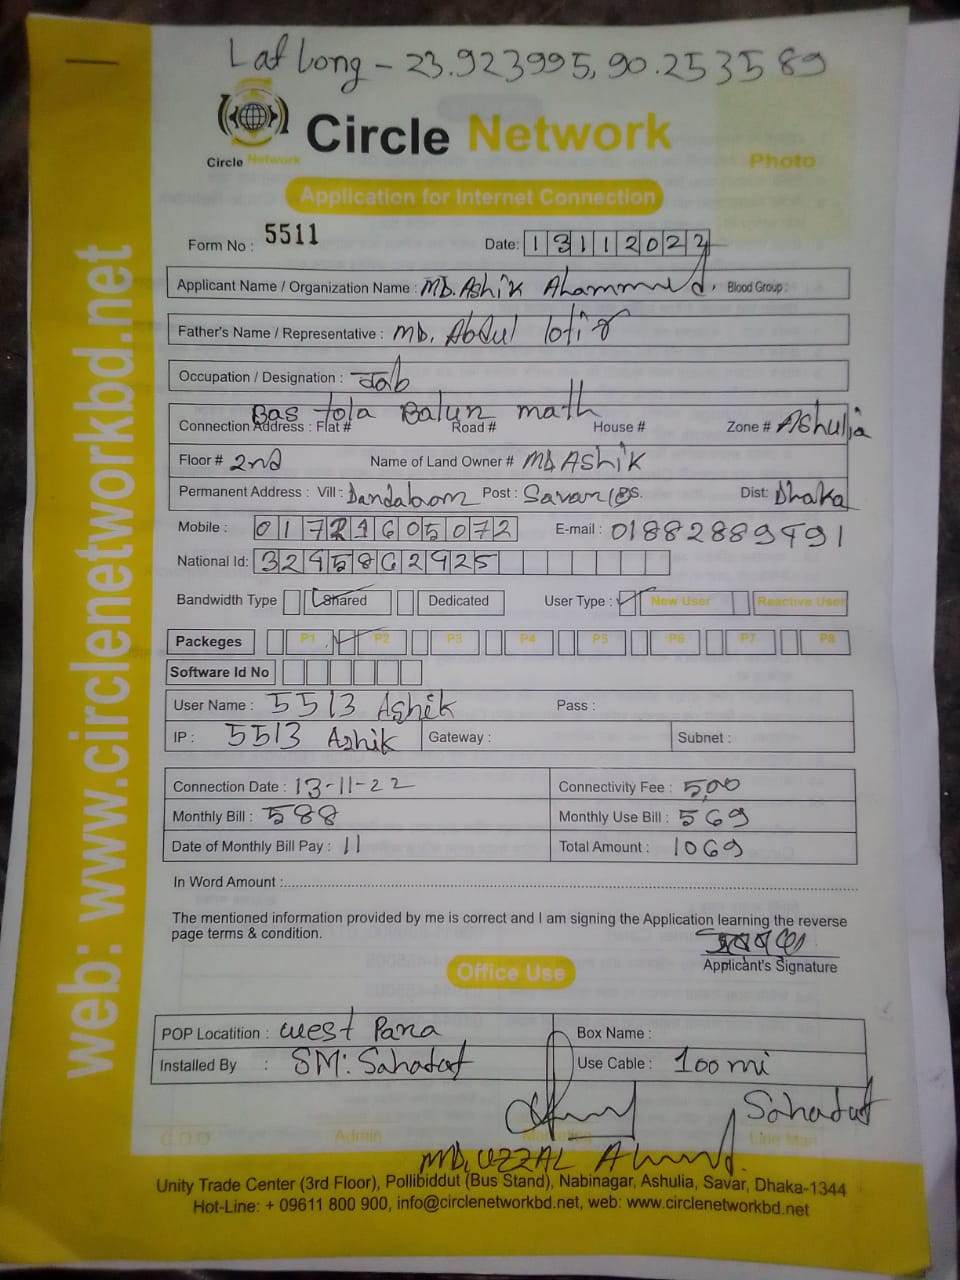 Lat Long - 23.923995, 90.253589
Circle Network
Circle Network
Photo
Application for Internet Connection
Form No : 5511 Date: 13112022
Applicant Name / Organization Name : MD. Ashik Ahammed. Blood Group :
Father's Name / Representative : MD. Abdul lotif
Occupation / Designation : Job
Bas tola Balur math
Connection Address : Flat # Road # House # Zone # Ashulia
Floor # 2nd Name of Land Owner # MD Ashik
Permanent Address : Vill : Post : Savar PS. Dist: Dhaka
Mobile : E-mail : 01882889491
National Id: 3245862425
Bandwidth Type Shared Dedicated User Type : New User Reactive User
Packeges P1 P2 P3 P4 P5 P6 P7 P8
Software Id No
User Name : 5513 Ashik Pass :
IP : 5513 Ashik Gateway : Subnet :
Connection Date : 13-11-22 Connectivity Fee : 500
Monthly Bill : 588 Monthly Use Bill : 569
Date of Monthly Bill Pay : 11 Total Amount : 1069
In Word Amount :
The mentioned information provided by me is correct and I am signing the Application learning the reverse
page terms & condition.
Applicant's Signature
Office Use
POP Locatition : west Para Box Name :
Installed By : SM: Sahadat Use Cable : 100 mi
Sahadat
C.O.O Admin Marketing Line Man
MD. UZZAL Ahmed.
Unity Trade Center (3rd Floor), Pollibiddut (Bus Stand), Nabinagar, Ashulia, Savar, Dhaka-1344
Hot-Line: + 09611 800 900, info@circlenetworkbd.net, web: www.circlenetworkbd.net
web: www.circlenetworkbd.net